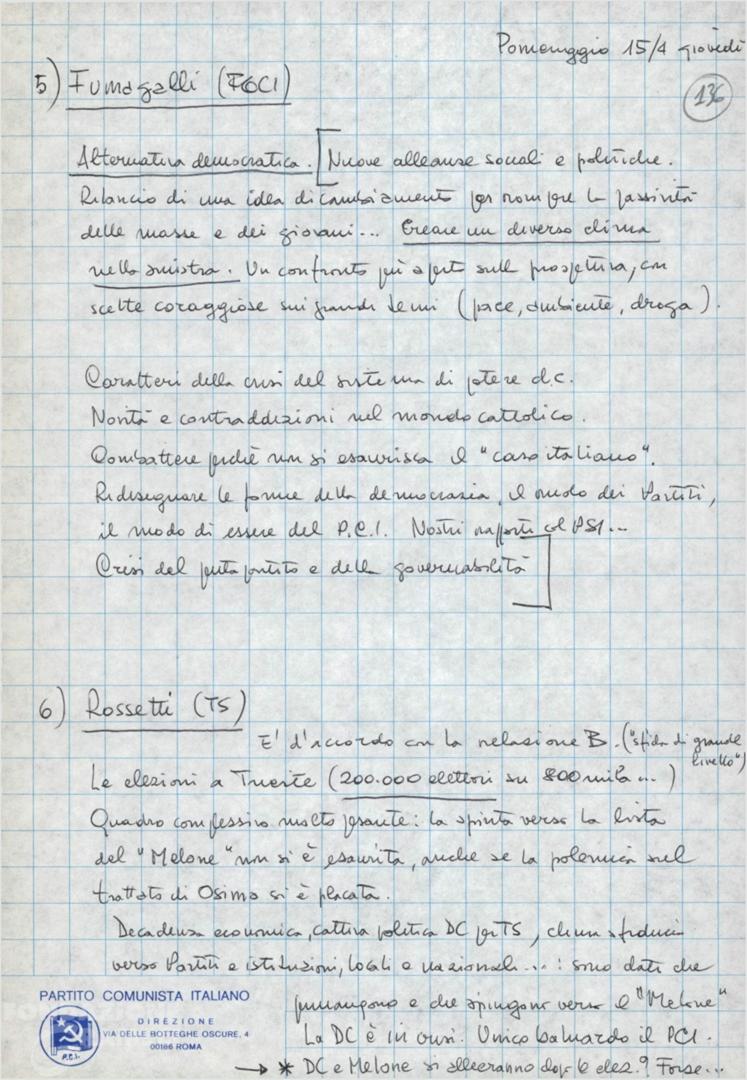 Pomeriggio 15/4 giovedì
136
5) Fumagalli (FGCI)
Alternativa democratica. [Nuove alleanze sociali e politiche.
Rilancio di una idea di cambiamento per rompere la passività
delle masse e dei giovani... Creare un diverso clima
nella sinistra. Un confronto più aperto sulle prospettive, con
scelte coraggiose sui grandi temi (pace, ambiente, droga).
Caratteri della crisi del sistema di potere d.c.
Novità e contraddizioni nel mondo cattolico.
Combattere perchè non si esaurisca il "caso italiano".
Ridisegnare le forme della democrazia, il ruolo dei Partiti,
il modo di essere del P.C.I. Nostri rapporti col PSI...
Crisi del pentapartito e della governabilità]
6) Rossetti (TS)
E' d'accordo con la relazione B. ("sfida di grande
livello")
Le elezioni a Trieste (200.000 elettori su 800 mila...)
Quadro complessivo molto pesante: la spinta verso la lista
del "Melone" non si è esaurita, anche se la polemica sul
trattato di Osimo si è placata.
Decadenza economica, cattiva politica DC per TS, sfiducia
verso Partiti e istituzioni, locali e nazionali...: sono dati che
permangono e che spingono verso il "Melone"
La DC è in crisi. Unico baluardo il PCI.
→ * DC e Melone si alleeranno dopo le elez.? Forse...
PARTITO COMUNISTA ITALIANO
DIREZIONE
VIA DELLE BOTTEGHE OSCURE, 4
00186 ROMA
P.C.I.